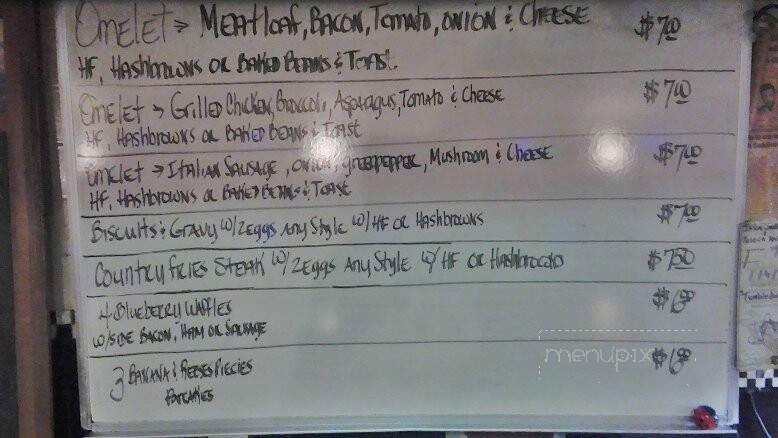 Omelet → Meatloaf, Bacon, Tomato, onion & Cheese $7.00
HF, Hashbrowns or Baked Beans & Toast
Omelet → Grilled Chicken, Broccoli, Asparagus, Tomato & Cheese $7.00
HF, Hashbrowns or Baked Beans & Toast
Omelet → Italian Sausage, onion, greenpepper, Mushroom & Cheese $7.00
HF, Hashbrowns or Baked Beans & Toast
Biscuits & Gravy w/ 2 eggs Any Style w/ HF or Hashbrowns $7.00
Country fries Steak w/ 2 eggs Any Style w/ HF or Hashbrowns $7.50
4 Blueberry Waffles
w/ side Bacon, Ham or Sausage
3 Banana & Reeses Piecies
Pancakes
menupix